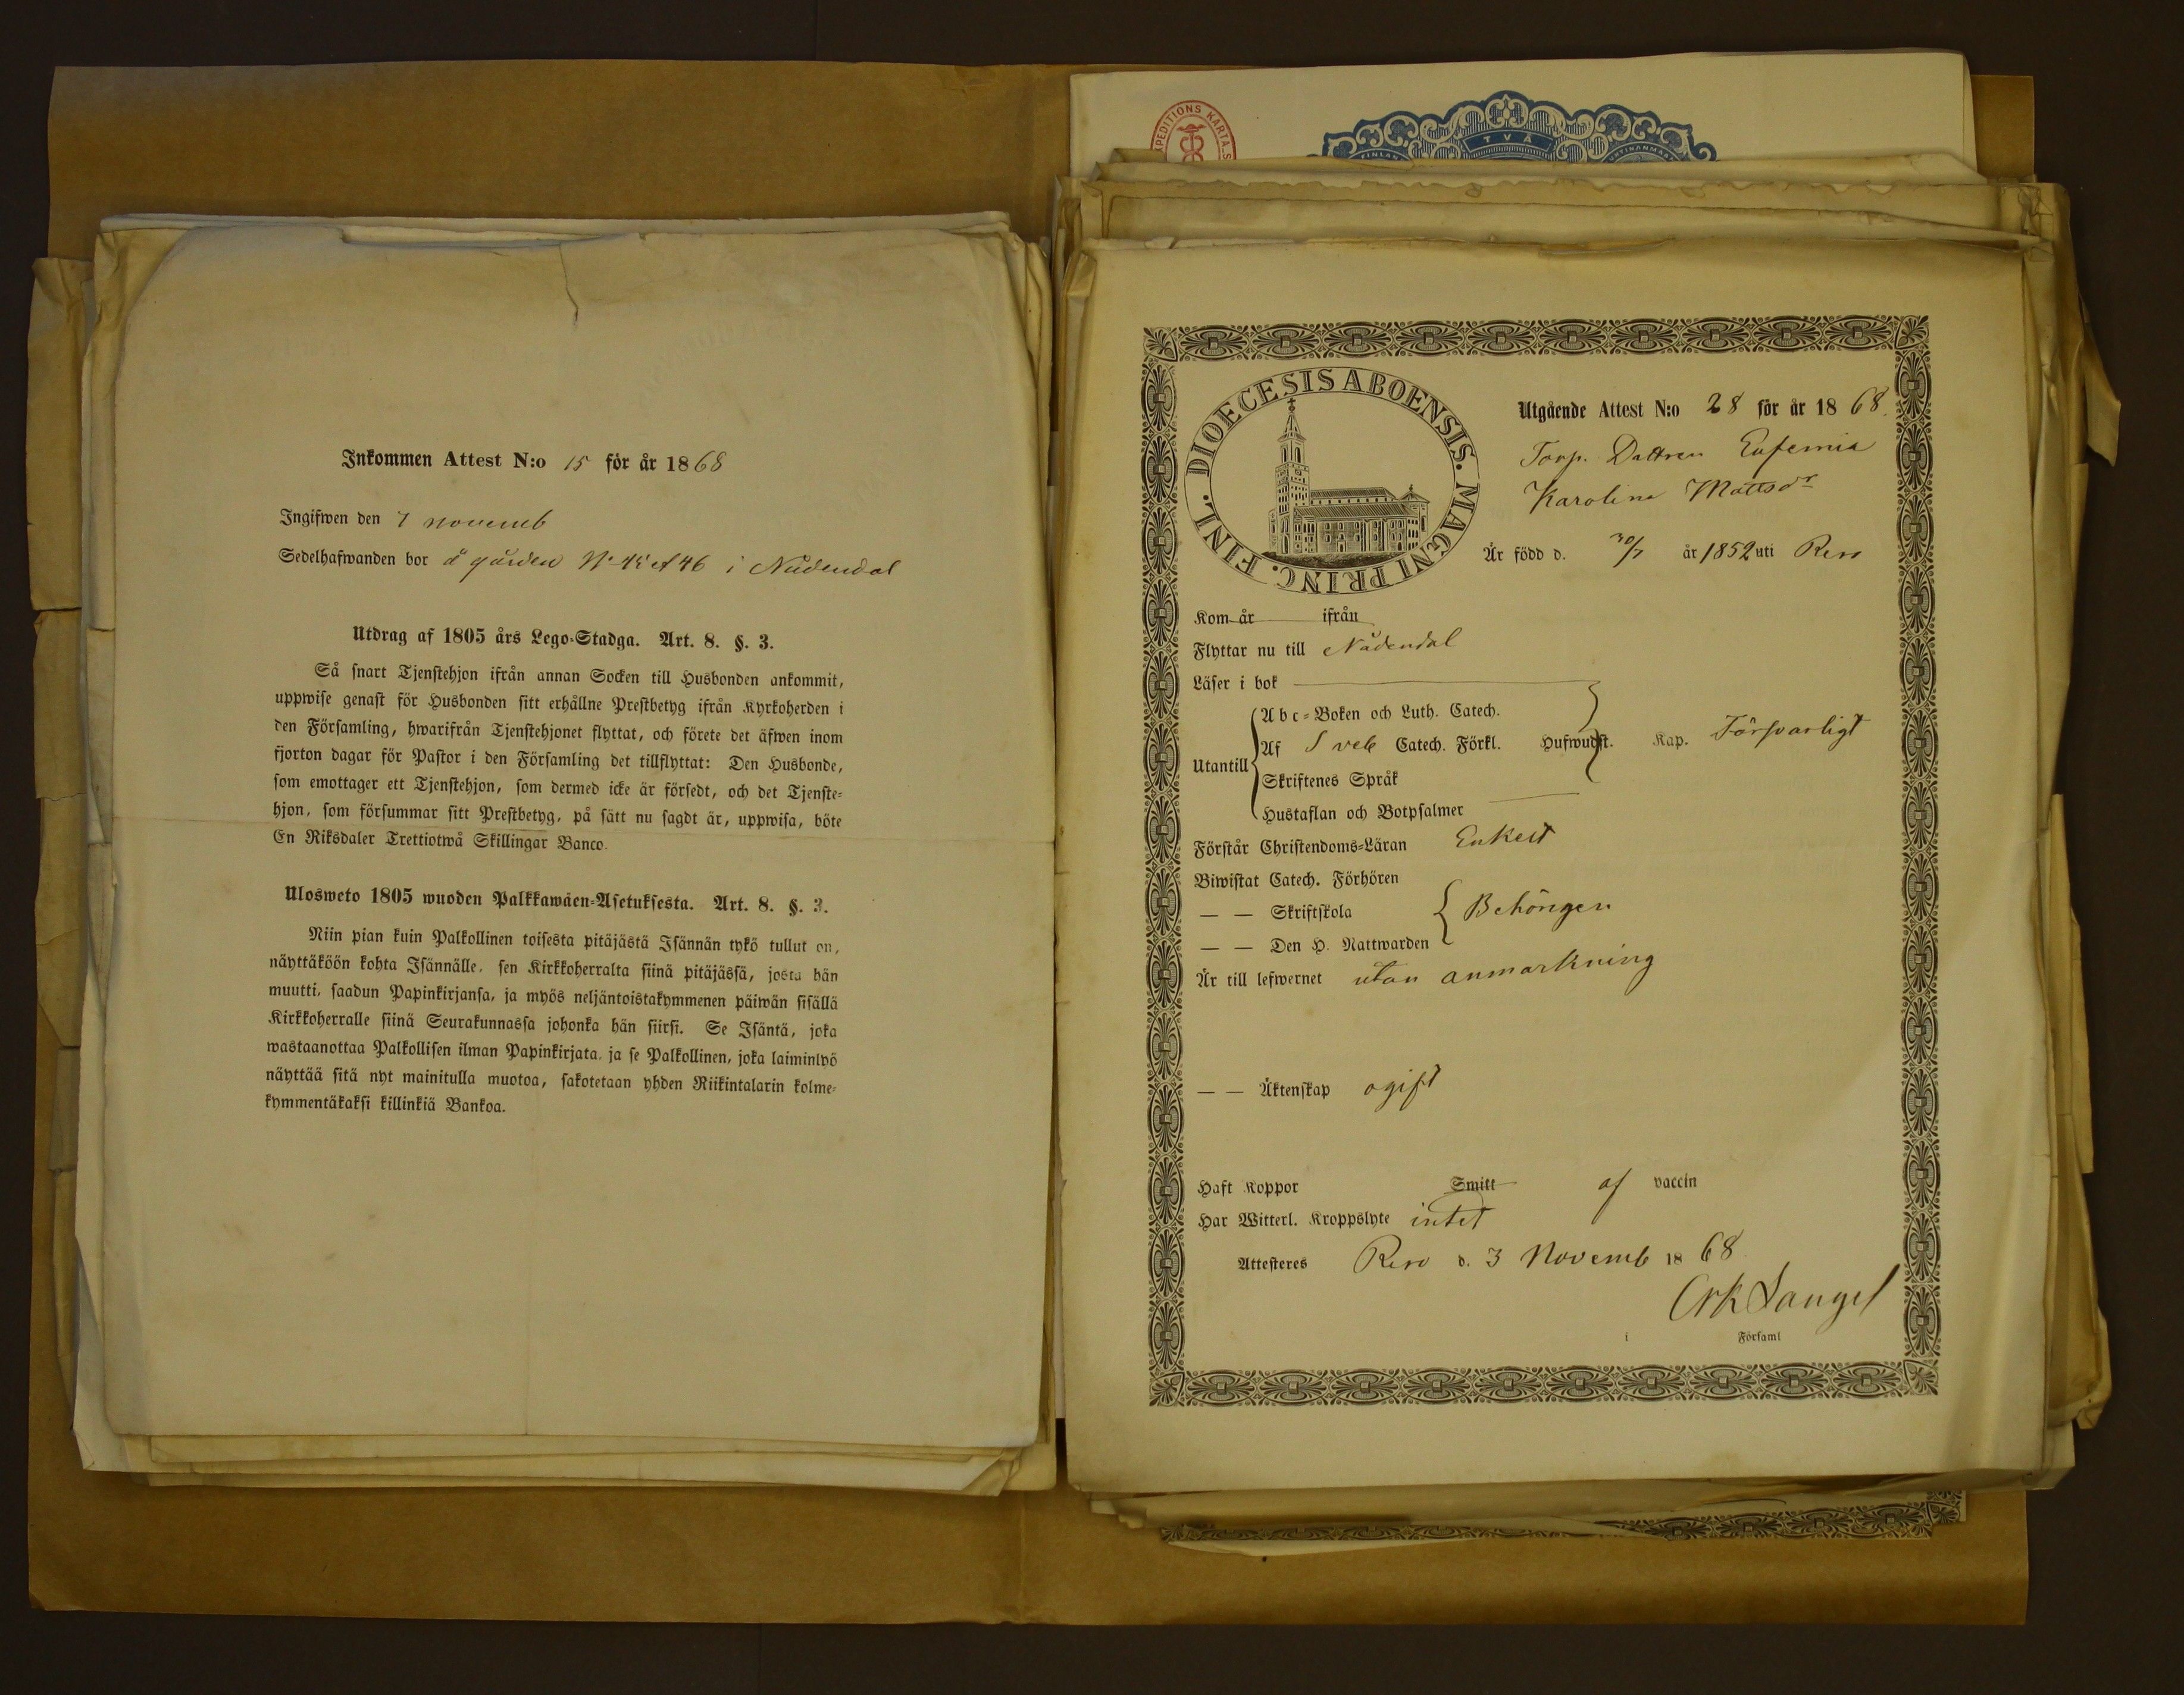 Inkommen Attest N:o 15 för år 1868
Ingifwen den 7 novemb
Sedelhafwanden bor å gården No 45 et 46 i Nådendal
Utdrag af 1805 års Lego-Stadga. Art. 8. §. 3.
Så snart Tjenstehjon ifrån annan Socken till Husbonden ankommit,
uppwise genast för Husbonden sitt erhållne Prestbetyg ifrån Kyrkoherden i
den Församling, hwarifrån Tjenstehjonet flyttat, och förete det äfwen inom
fjorton dagar för Pastor i den Församling det tillflyttat: Den Husbonde,
som emottager ett Tjenstehjon, som dermed icke är försedt, och det Tjenste-
hjon, som försummar sitt Prestbetyg, på sätt nu sagdt är, uppwisa, böte
En Riksdaler Trettiotwå Skillingar Banco.
Ulosweto 1805 wuoden Palkkawäen-Asetuksesta. Art. 8. §. 3.
Niin pian kuin Palkollinen toisesta pitäjästä Isännän tykö tullut on,
näyttäköön kohta Isännälle, sen Kirkkoherralta siinä pitäjässä, josta hän
muutti, saadun Papinkirjansa, ja myös neljäntoistakymmenen päiwän sisällä
Kirkkoherralle siinä Seurakunnassa johonka hän siirsi. Se Isäntä, joka
wastaanottaa Palkollisen ilman Papinkirjata, ja se Palkollinen, joka laiminlyö
näyttää sitä nyt mainitulla muotoa, sakotetaan yhden Riikintalarin kolme-
kymmentäkaksi killinkiä Bankoa.
EXPEDITIONS KARTA
TVÅ
FINL. DIOECESIS ABOENSIS. MAGNI PRINC.
Utgående Attest N:o 28 för år 1868.
Torp. Dottren Eufemia
Karolina Mattsdr
Är född d. 30/7 år 1852 uti Reso
Kom år ifrån
Flyttar nu till Nådendal
Läser i bok
Abc-Boken och Luth. Catech.
Utantill Af Sveb Catech. Förkl. Hufwudst. Kap. Försvarligt
Skriftenes Språk
Hustaflan och Botpsalmer
Förstår Christendoms-Läran Enkelt
Biwistat Catech. Förhören
— — Skriftskola Behörigen
— — Den H. Nattwarden
Är till lefwernet utan anmärkning
— — Äktenskap ogift
Haft Koppor Smitt af vaccin
Har Witterl. Kroppslyte intet
Attesteres Reso d. 3 Novemb 1868
i Församl